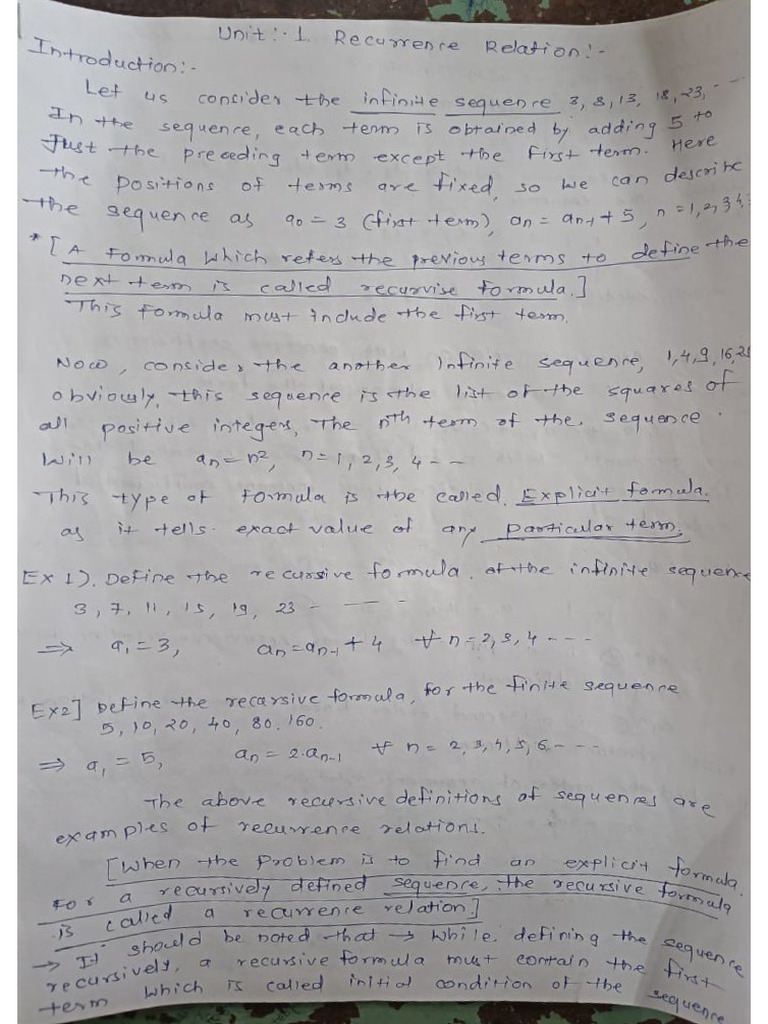 Unit:-1 Recurrence Relation:-
Introduction:-
Let us concider the infinite sequence 3, 8, 13, 18, 23, - -
In the sequence, each term is obtained by adding 5 to
Just the preceding term except the first term. Here
the positions of terms are fixed, so we can describe
the sequence as a0 = 3 (first term), an = an-1 + 5, n = 1, 2, 3, 4,
* [ A Formula which refers the previous terms to define the
next term is called recurvise formula.]
This Formula must include the first term.
Now, consider the another Infinite sequence, 1, 4, 9, 16, 25
obviously, this sequence is the list of the squares of
all positive integers, The nth term of the sequence
will be an = n², n = 1, 2, 3, 4 - -
This type of formula is the called Explicit formula.
as it tells exact value of any particular term.
Ex 1). Define the recursive formula of the infinite sequence
3, 7, 11, 15, 19, 23 - — -
⇒ a1 = 3, an = an-1 + 4 ∀ n = 2, 3, 4 - - - -
Ex2] Define the recarsive formula, for the finite sequence
5, 10, 20, 40, 80, 160.
⇒ a1 = 5, an = 2·an-1 ∀ n = 2, 3, 4, 5, 6 - - - -
The above recursive definitions of sequences are
examples of recurrence relations.
[When the problem is to find an explicit formula
for a recursively defined sequence, the recursive formula
is called a recurrence relation]
→ It should be noted that → while defining the sequence
recursively, a recursive formula must contain the first
term which is called initial condition of the sequence